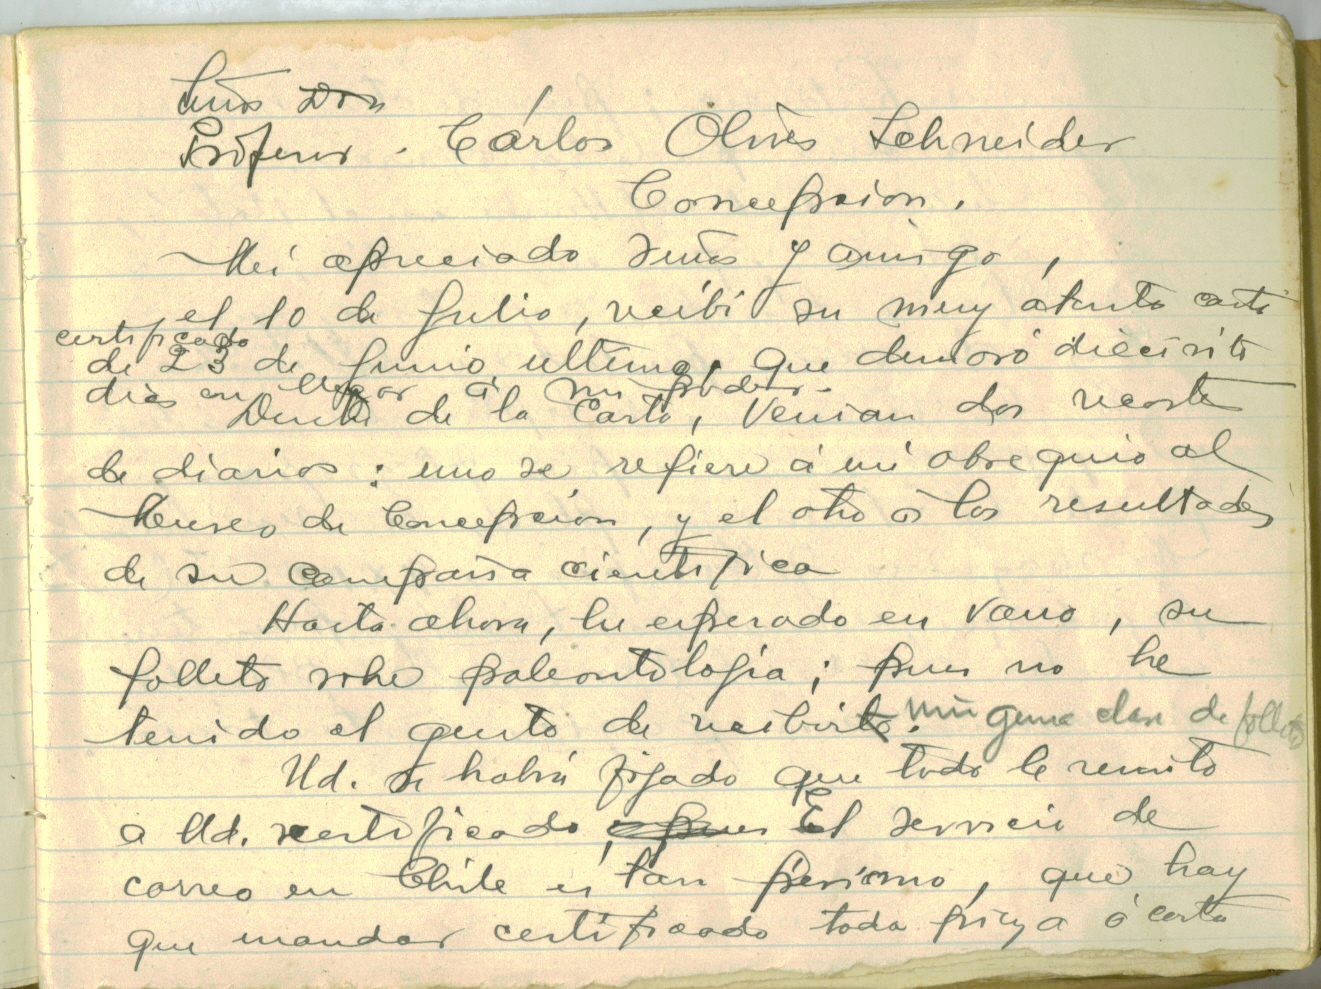 Señor Don
Profesor. Cárlos Oliver Schneider
Concepcion.
Mi apreciado señor y amigo,
el 10 de Julio, recibi su muy atenta carta
certificada
de 23 de Junio ultimo, que demoró diecisiete
dias en llegar á mi poder.
Dentro de la Carta, venian dos recortes
de diarios: uno se refiere á mi obsequio al
Museo de Concepcion, y el otro á los resultados
de su campaña cientifica
Hasta ahora, he esperado en vano, su
folleto sobre paleontologia; pues no he
tenido el gusto de recibirlo. ninguna clase de folleto
Ud. se habrá fijado que todo le remito
a Ud. certificado, pues El servicio de
correo en Chile es tan pesimo, que hay
que mandar certificado toda pieza ó carta